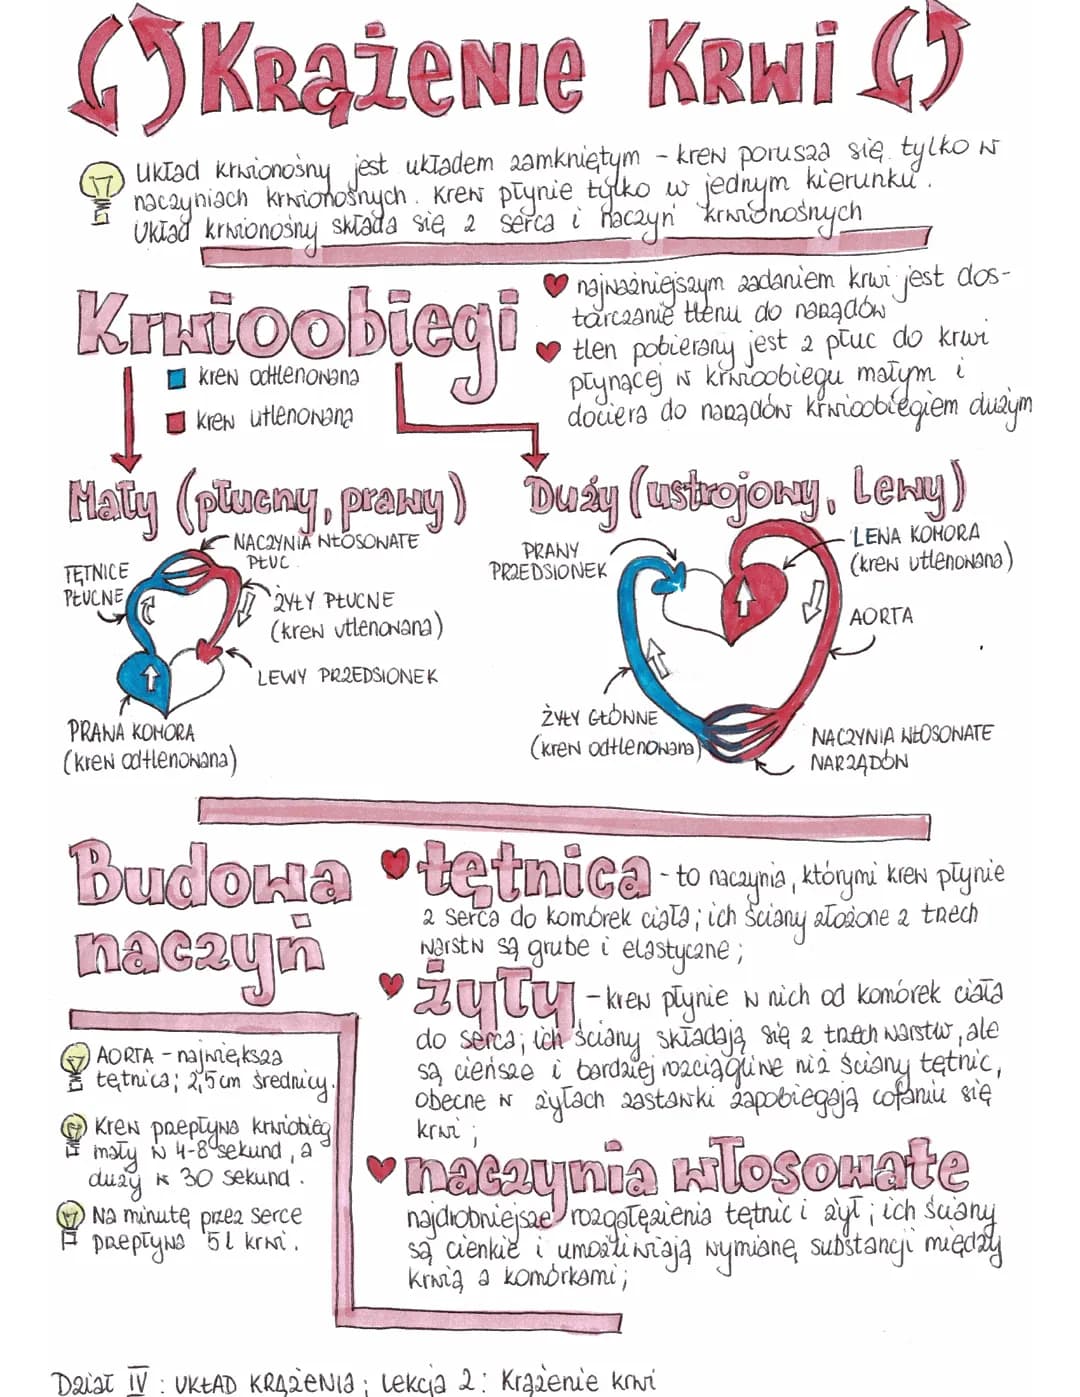 KRĄŻENIE KRWI
Układ krwionośny jest układem zamkniętym - krew porusza się tylko w
naczyniach krwionośnych. Krew płynie tylko w jednym kierunku.
Układ krwionośny składa się z serca i naczyń krwionośnych
Krwioobiegi
krew odtlenowana
krew utlenowana
najważniejszym zadaniem krwi jest dos-
tarczanie tlenu do narządów
tlen pobierany jest z płuc do krwi
płynącej w krwioobiegu małym i
dociera do narządów krwioobiegiem dużym
Mały (płucny, prawy)
NACZYNIA WŁOSOWATE
PŁUC
TĘTNICE
PŁUCNE
ŻYŁY PŁUCNE
(krew utlenowana)
LEWY PRZEDSIONEK
PRAWA KOMORA
(krew odtlenowana)
Duży (ustrojowy, Lewy)
PRAWY
PRZEDSIONEK
LEWA KOMORA
(krew utlenowana)
AORTA
ŻYŁY GŁÓWNE
(krew odtlenowana)
NACZYNIA WŁOSOWATE
NARZĄDÓW
Budowa
naczyń
AORTA - największa
tętnica; 2,5cm średnicy.
Krew przepływa krwiobieg
mały w 4-8 sekund, a
duży w 30 sekund.
Na minutę przez serce
przepływa 5l krwi.
tętnica - to naczynia, którymi krew płynie
z serca do komórek ciała; ich ściany złożone z trzech
warstw są grube i elastyczne;
żyły - krew płynie w nich od komórek ciała
do serca; ich ściany składają się z trzech warstw, ale
są cieńsze i bardziej rozciągliwe niż ściany tętnic,
obecne w żyłach zastawki zapobiegają cofaniu się
krwi;
naczynia włosowate
najdrobniejsze rozgałęzienia tętnic i żył; ich ściany
są cienkie i umożliwiają wymianę substancji między
krwią a komórkami;
Dział IV: UKŁAD KRĄŻENIA; Lekcja 2: Krążenie krwi